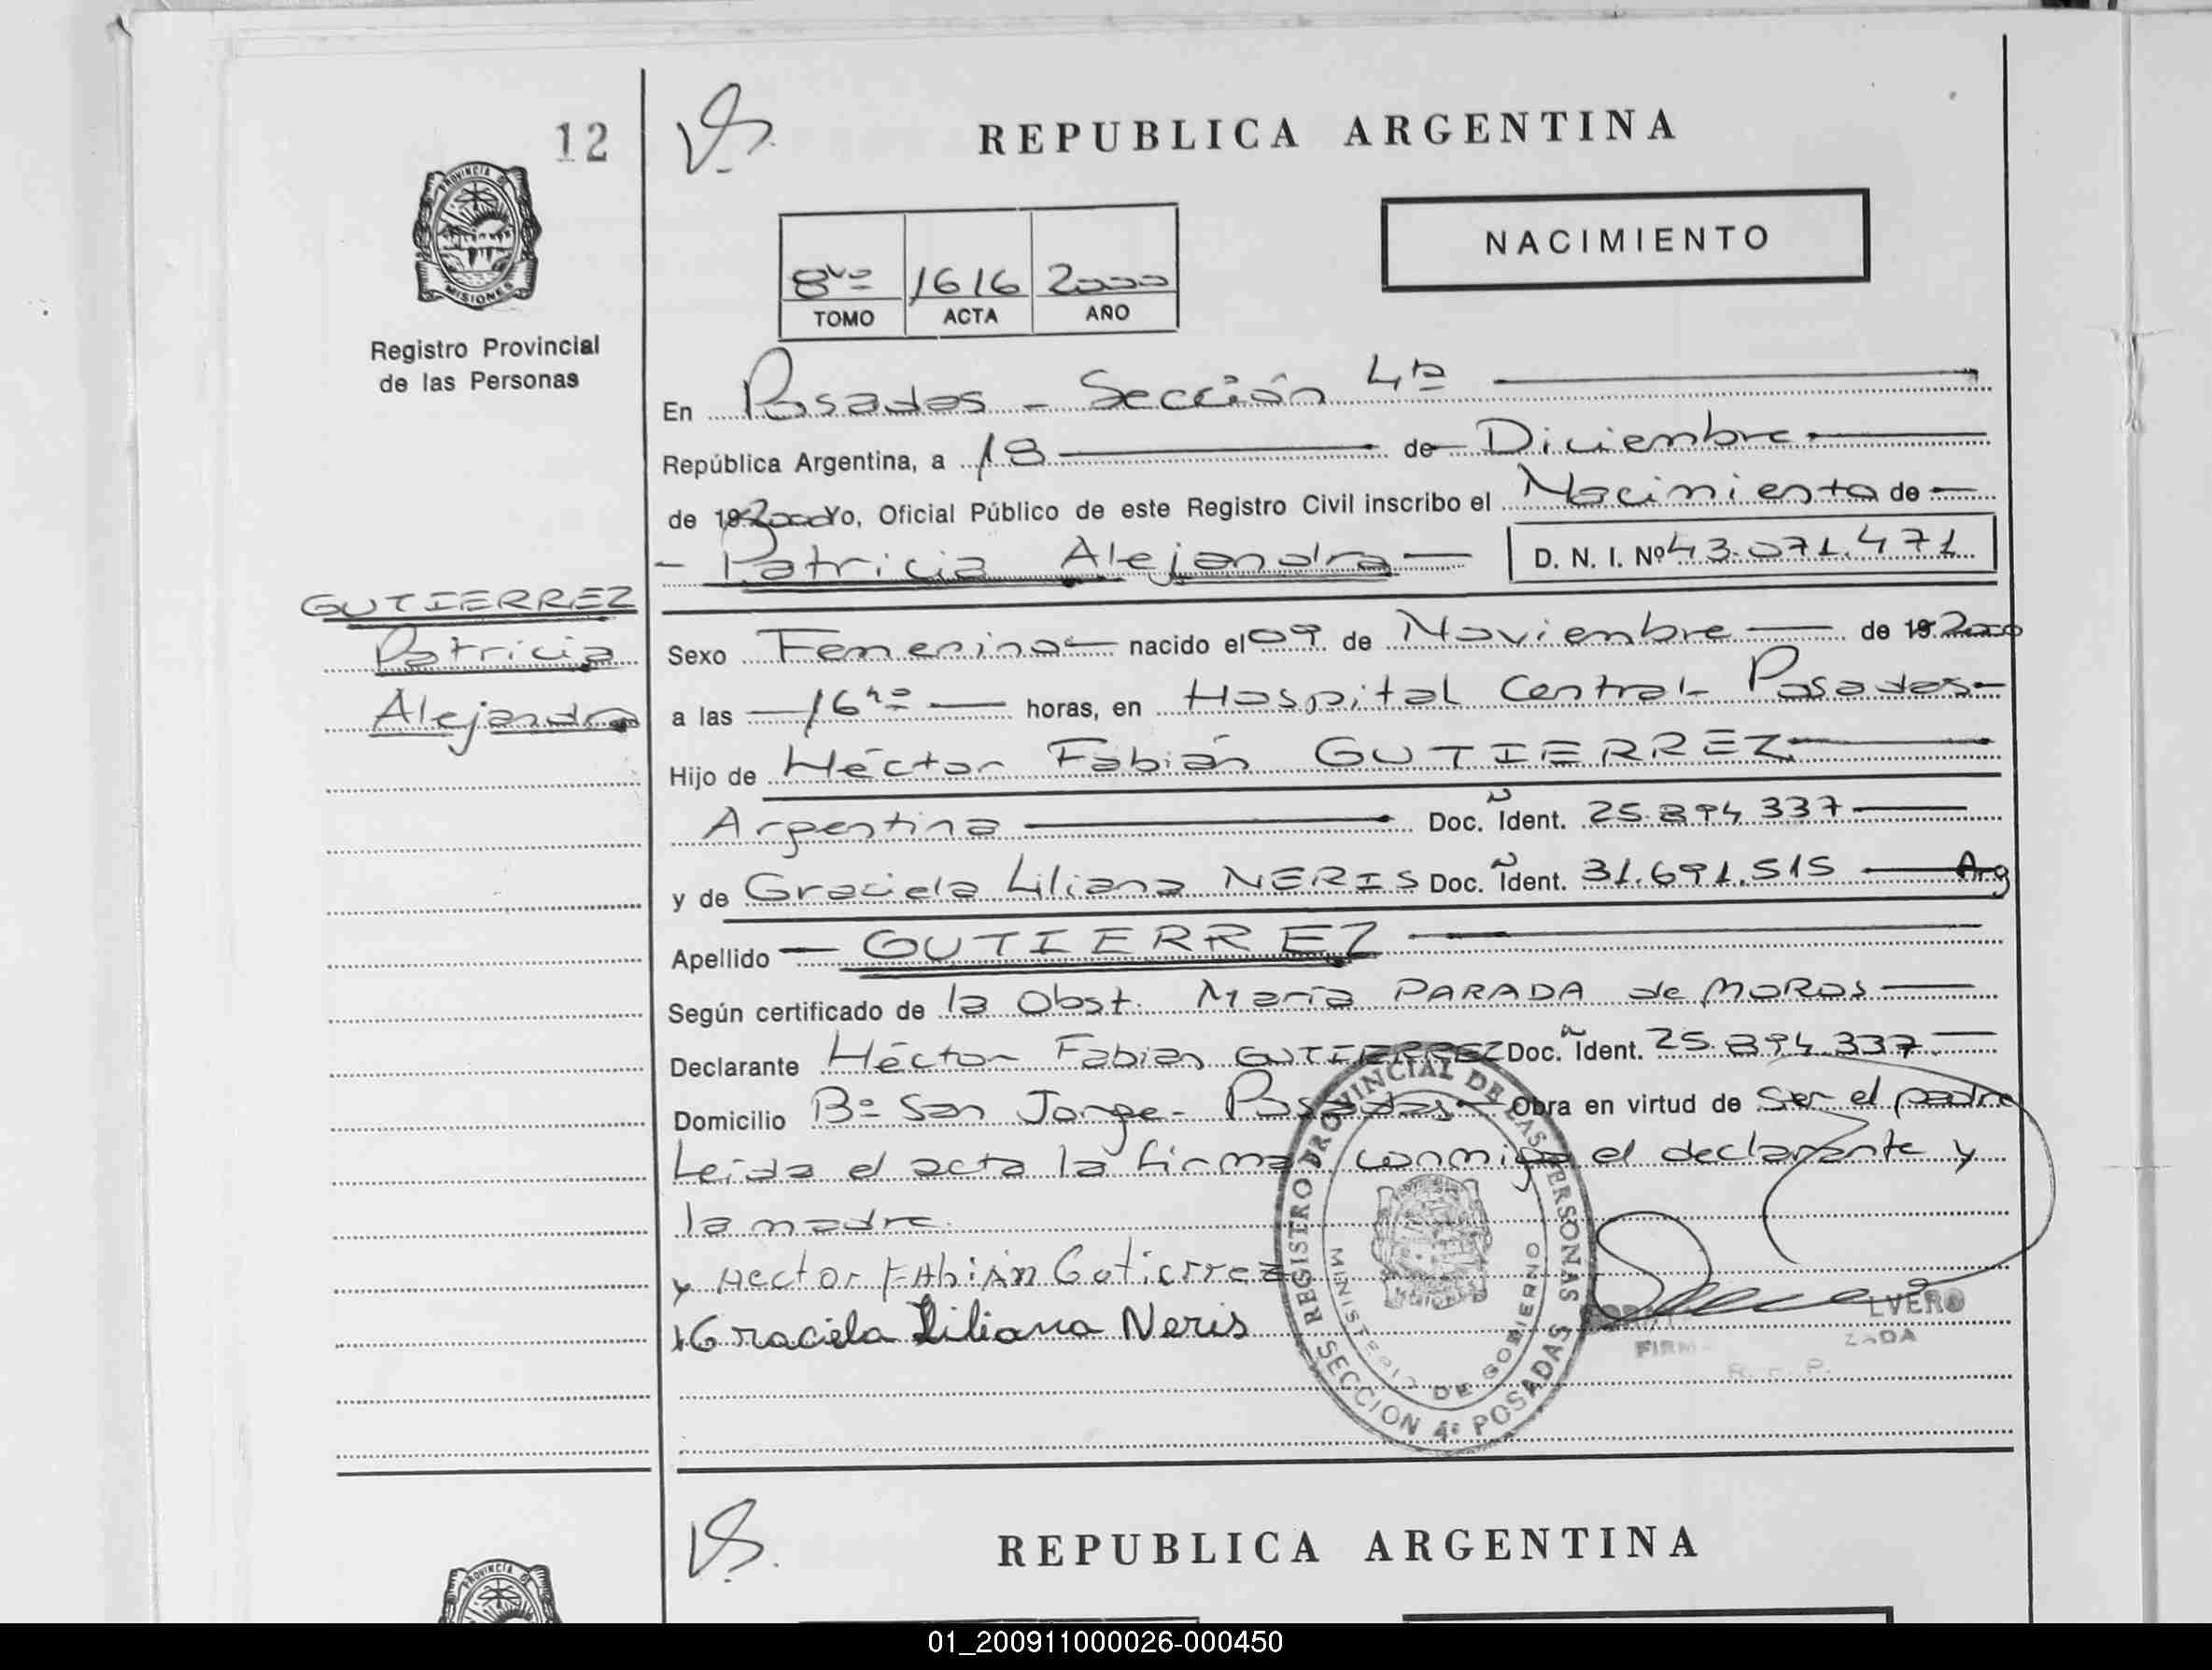 12
REPUBLICA ARGENTINA
PROVINCIA D
MISIONES
Registro Provincial
de las Personas
NACIMIENTO
8vo 1616 2000
TOMO ACTA AÑO
En Posadas - Sección 4ta
República Argentina, a 18 de Diciembre
de 19 2000 Yo, Oficial Público de este Registro Civil inscribo el Nacimiento de
- Patricia Alejandra - D. N. I. Nº 43.071.471
GUTIERREZ
Patricia
Alejandra
Sexo Femenino nacido el 09 de Noviembre de 19 2000
a las 16hs horas, en Hospital Central - Posadas
Hijo de Héctor Fabián GUTIERREZ
Argentina Doc. Ident. 25.894.337
y de Graciela Liliana NERIS Doc. Ident. 31.691.515 Arg
Apellido GUTIERREZ
Según certificado de la Obst. María PARADA de MOROS
Declarante Héctor Fabián GUTIERREZ Doc. Ident. 25.894.337
Domicilio Bº San Jorge - Posadas - Obra en virtud de ser el padre
Leida el acta la firman conmigo el declarante y
la madre.
x Hector FAbiAn Gutierrez
x Graciela Liliana Neris
REGISTRO PROVINCIAL DE LAS PERSONAS
MINISTERIO DE GOBIERNO
SECCION 4ª POSADAS
REPUBLICA ARGENTINA
PROVINCIA D
01_200911000026-000450